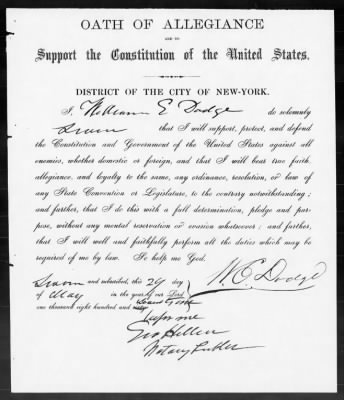 OATH OF ALLEGIANCE
AND TO
Support the Constitution of the United States.
DISTRICT OF THE CITY OF NEW-YORK.
I, William E Dodge do solemnly
Swear that I will support, protect, and defend
the Constitution and Government of the United States against all
enemies, whether domestic or foreign, and that I will bear true faith,
allegiance, and loyalty to the same, any ordinance, resolution, or law of
any State Convention or Legislature, to the contrary notwithstanding;
and farther, that I do this with a full determination, pledge and pur-
pose, without any mental reservation or evasion whatsoever; and farther,
that I will well and faithfully perform all the duties which may be
required of me by law. So help me God.
Sworn and subscribed, this 29 day
W. E. Dodge
of May in the year of our Lord
one thousand eight hundred and
before me
Notary Public